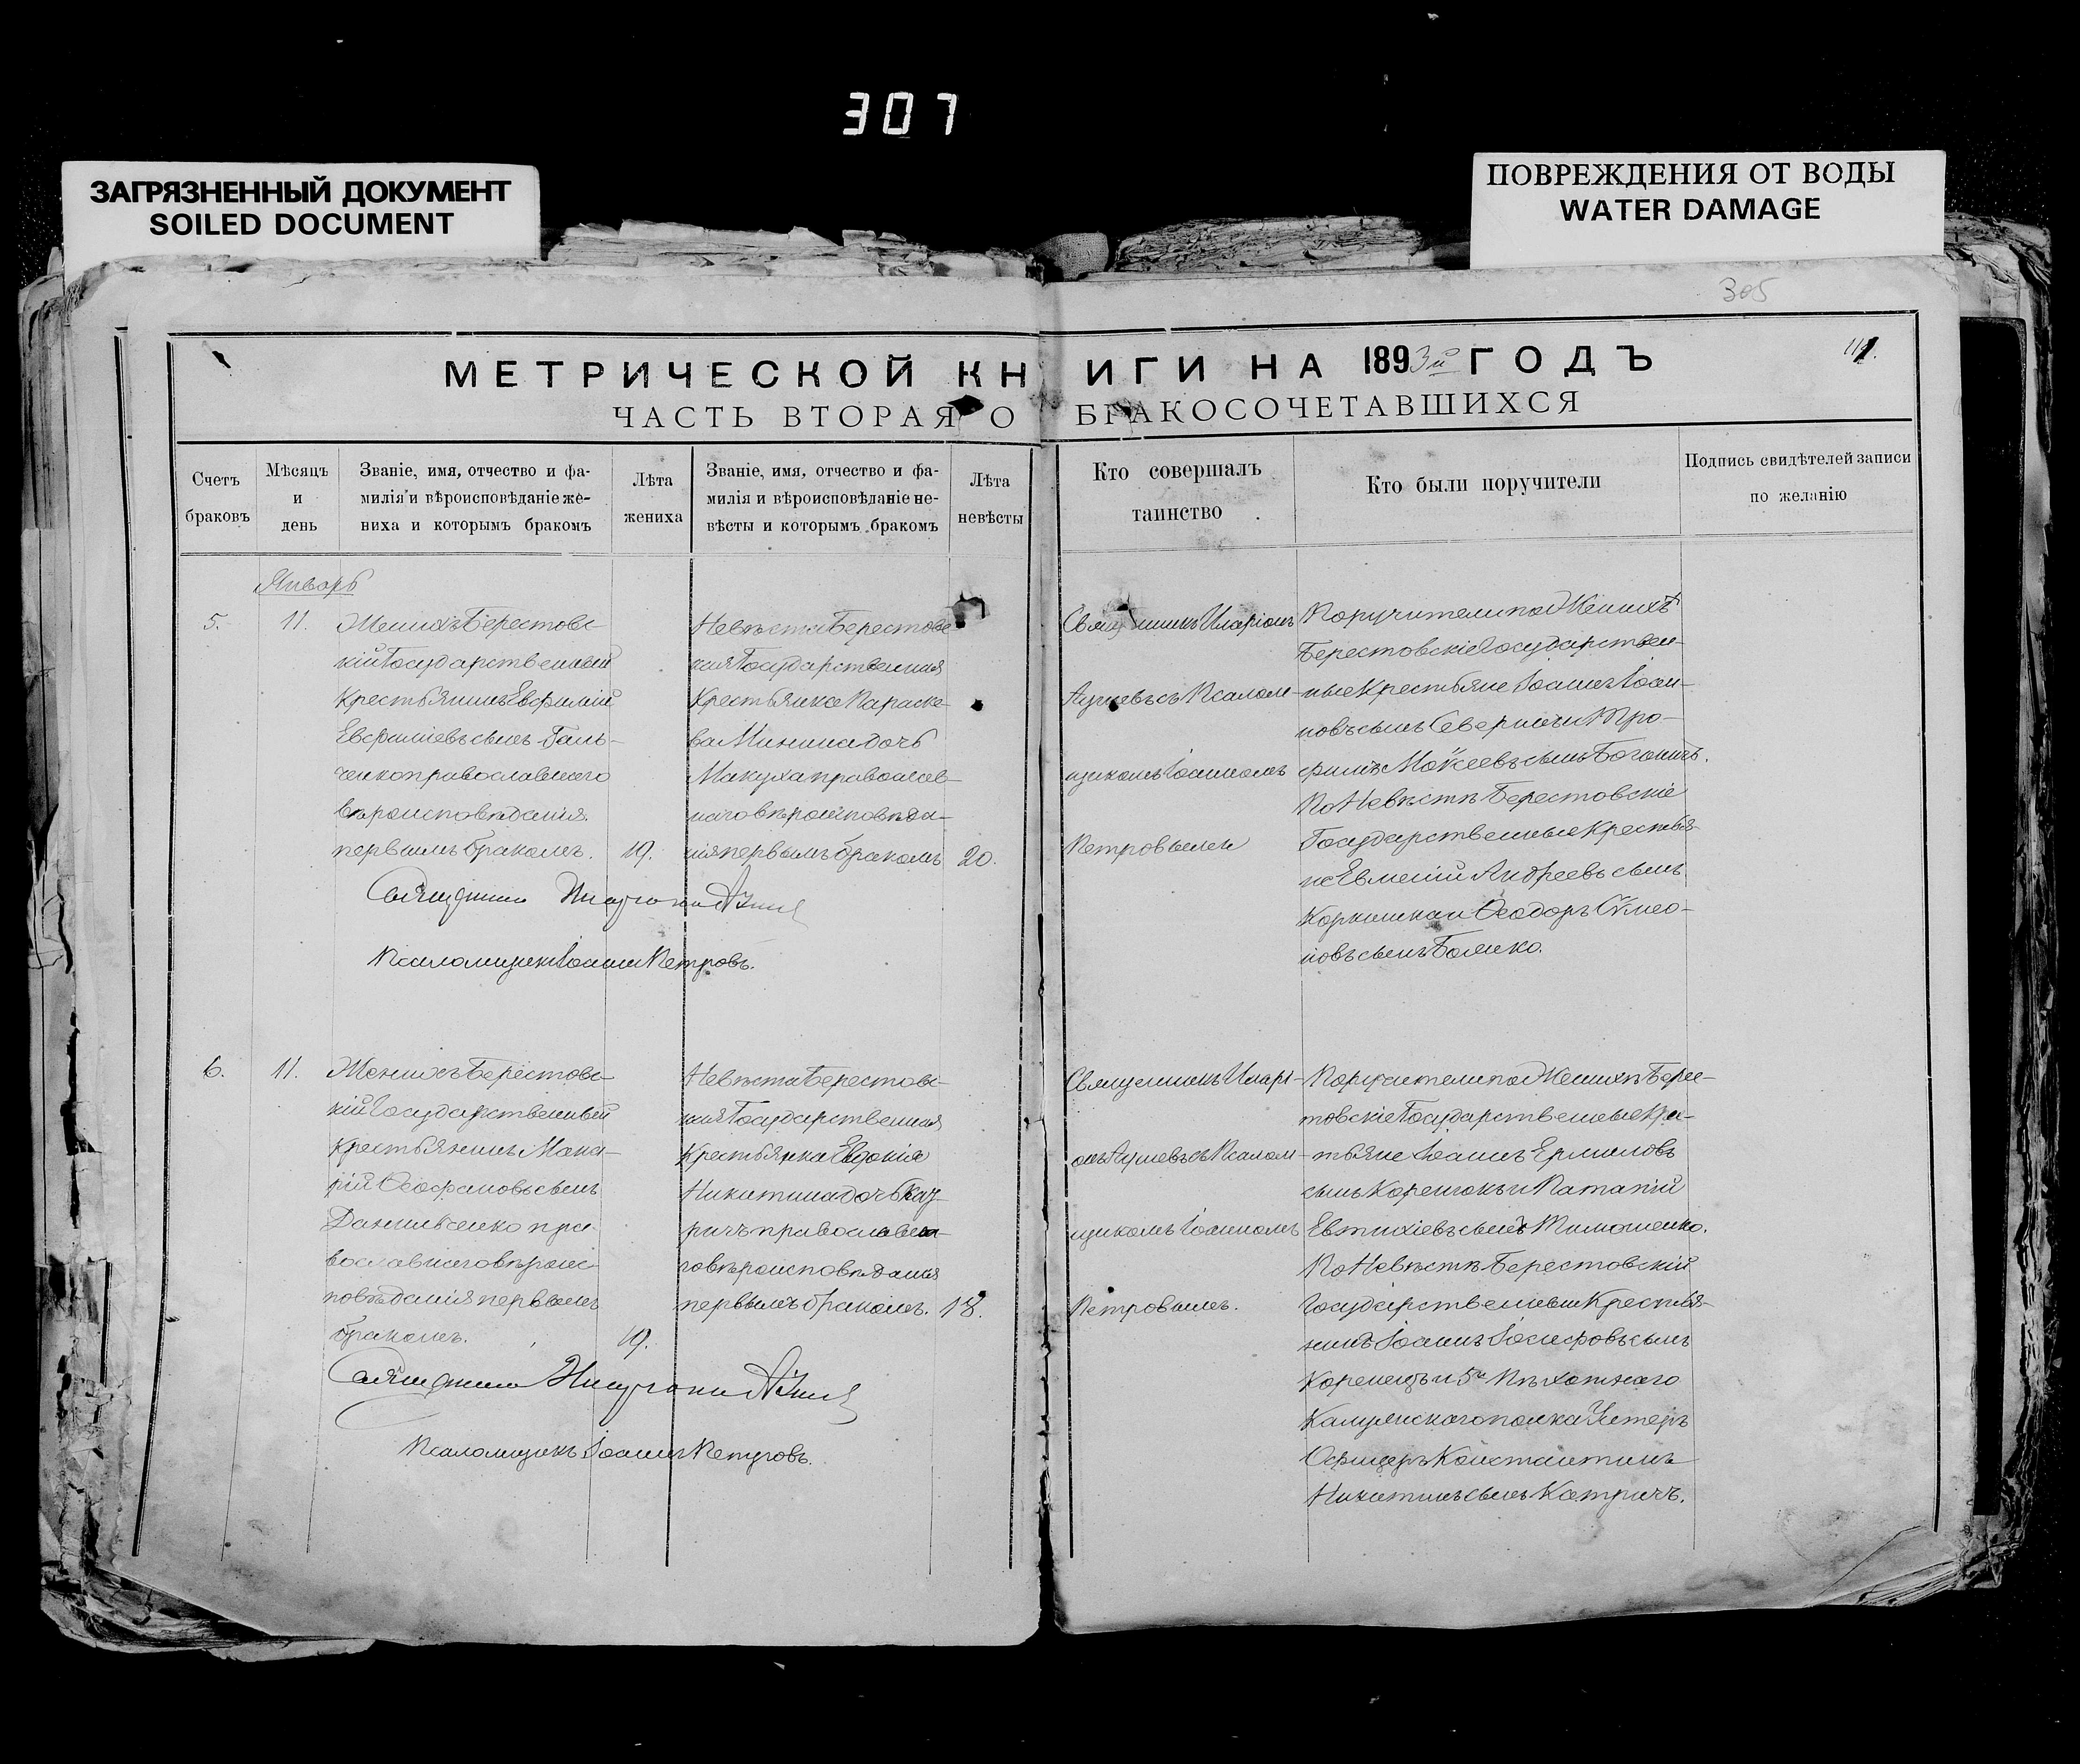 307
ЗАГРЯЗНЕННЫЙ ДОКУМЕНТ
SOILED DOCUMENT
ПОВРЕЖДЕНИЯ ОТ ВОДЫ
WATER DAMAGE
305
МЕТРИЧЕСКОЙ КНИГИ НА 1893й ГОДЪ
ЧАСТЬ ВТОРАЯ О БРАКОСОЧЕТАВШИХСЯ
Счетъ
браковъ
Мѣсяцъ
и
день
Званіе, имя, отчество и фа-
милія и вѣроисповѣданіе же-
ниха и которымъ бракомъ
Лѣта
жениха
Званіе, имя, отчество и фа-
милія и вѣроисповѣданіе не-
вѣсты и которымъ бракомъ
Лѣта
невѣсты
Кто совершалъ
таинство
Кто были поручители
Подпись свидѣтелей записи
по желанію
Январь
5.
11.
Женихъ Берестовс-
кій Государственный
Крестьянинъ Евфимій
Евфиміевъ сынъ Галь-
ченко православнаго
вѣроисповѣданія.
первымъ бракомъ.
19.
Невѣста Берестовс-
кая Государственная
Крестьянка Параске-
ва Минина дочь
Макуха православ-
наго вѣроисповѣда-
нія первымъ бракомъ
20.
Священникъ Иларіонъ
съ Псалом-
щикомъ Іоанномъ
Петровымъ
Поручители по Женихѣ
Берестовскіе Государствен-
ные Крестьяне Іоаннъ Іоан-
новъ сынъ Северинъ и Тро-
фимъ Моѵсеевъ сынъ
По Невѣстѣ Берестовскіе
Государственные Крестья-
не Евменій Андреевъ сынъ
и Ѳеодоръ Сѵмео-
новъ сынъ
Священникъ
Псаломщикъ Іоаннъ Петровъ.
6.
11.
Женихъ Берестовс-
кій Государственный
Крестьянинъ Мака-
рій Ѳеофановъ сынъ
Данильченко пра-
вославнаго вѣроис-
повѣданія первымъ
бракомъ.
19.
Невѣста Берестовс-
кая Государственная
Крестьянка Евдокія
Никитина дочь Кат-
ричъ православна-
го вѣроисповѣданія
первымъ бракомъ.
18.
Священникъ Иларі-
онъ съ Псалом-
щикомъ Іоанномъ
Петровымъ.
Поручители по Женихѣ Берес-
товскіе Государственные Кре-
стьяне Іоаннъ Ермиловъ
сынъ и Патапій
Евтихіевъ сынъ Тимошенко.
По Невѣстѣ Берестовскій
Государственный Крестья-
нинъ Іоаннъ Іосифовъ сынъ
и 5й Пѣхотнаго
Калужскаго полка Унтеръ
Офицеръ Константинъ
Никитинъ сынъ Катричъ.
Священникъ
Псаломщикъ Іоаннъ Петровъ.